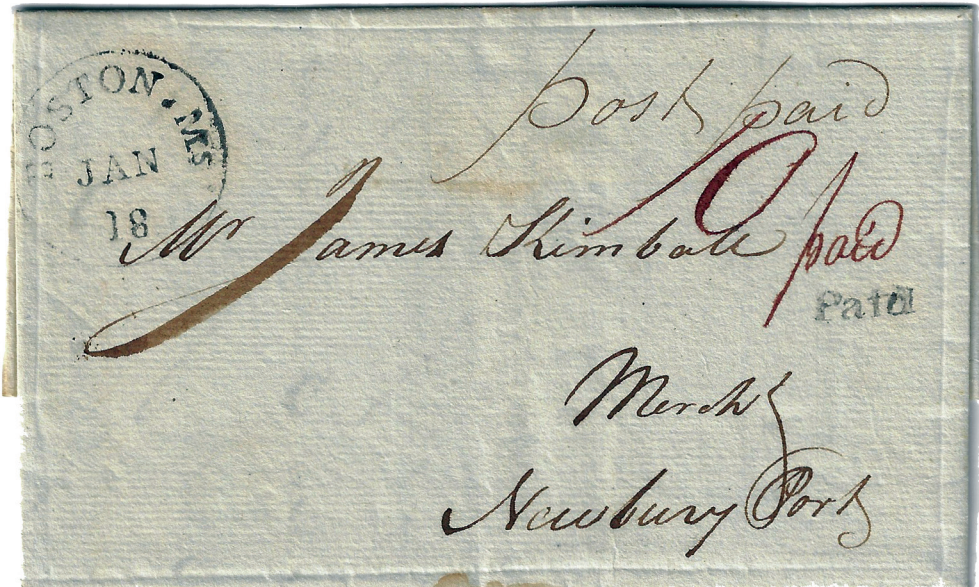 BOSTON. Ms
JAN
18
post paid
10 paid
Mr James Kimball
Paid
Mercht
Newbury Port